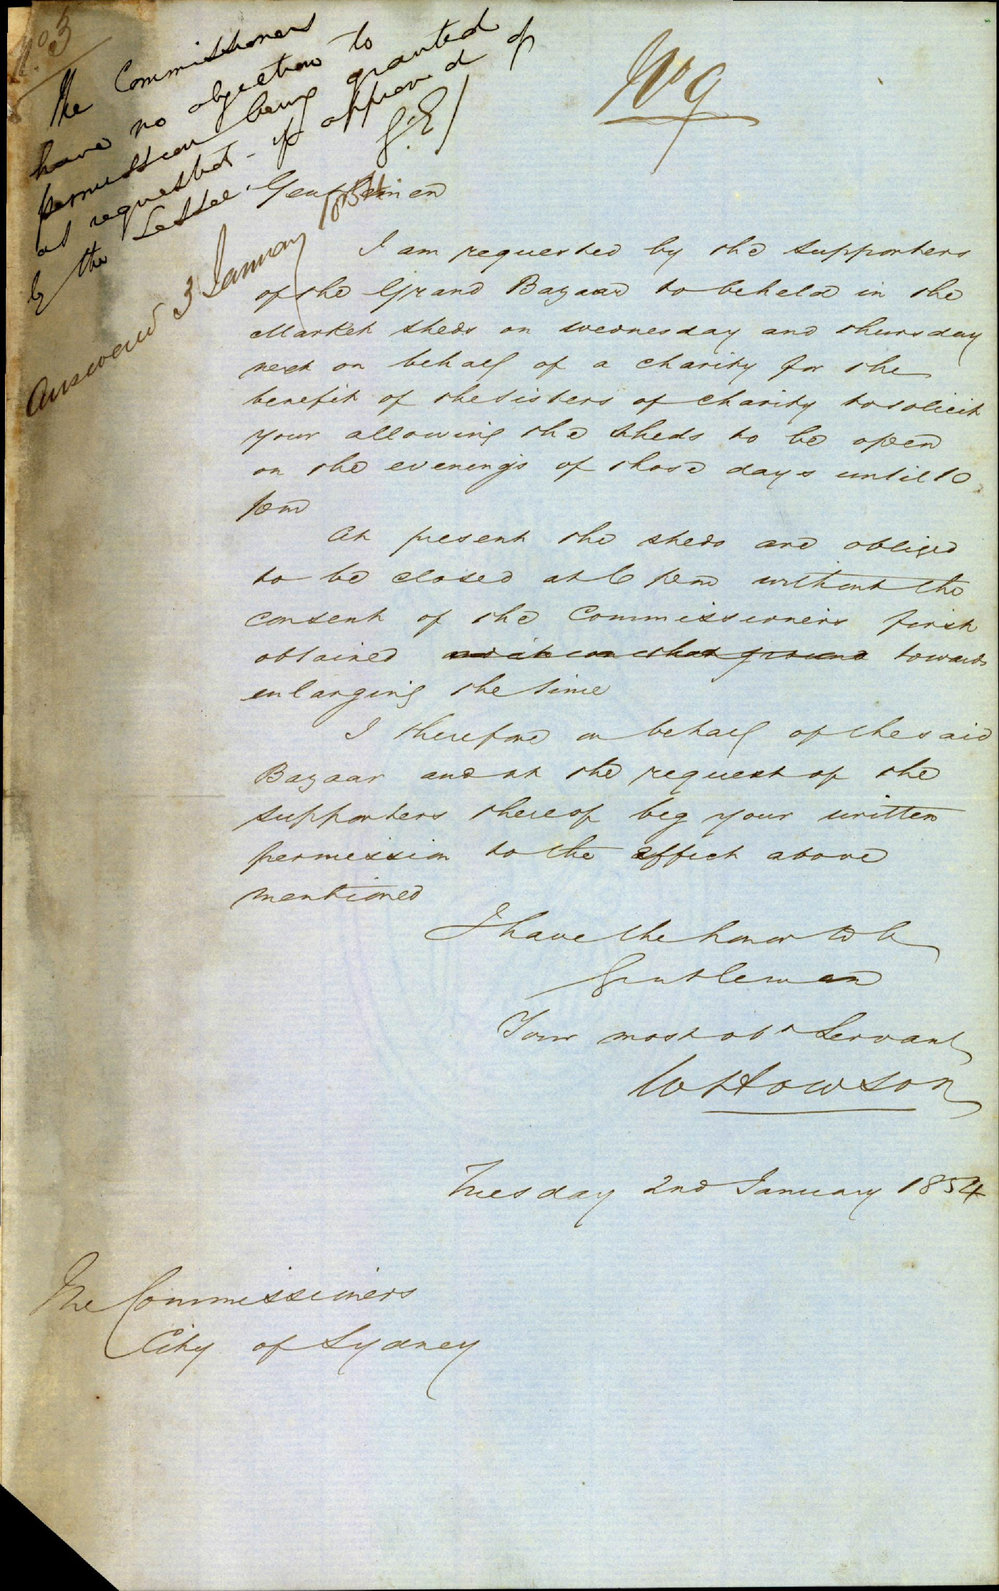 No. 3
No 9
The Commissioners
have no objection to
permission being granted
as requested - if approved of
by the Lessee.
G.E/
Answered 3 January 1854
Gentlemen
I am requested by the supporters
of the Grand Bazaar to be held in the
Market sheds on wednesday and thursday
next on behalf of a charity for the
benefit of the sisters of charity to solicit
your allowing the sheds to be open
on the evenings of those days until 10
pm
At present the sheds are obliged
to be closed at 6 pm without the
consent of the Commissioners first
obtained towards
enlarging the time
I therefore on behalf of the said
Bazaar and at the request of the
supporters thereof beg your written
permission to the effect above
mentioned
I have the honor to be
Gentlemen
Your most obt Servant
W Howson
Tuesday 2nd January 1854
The Commissioners
City of Sydney